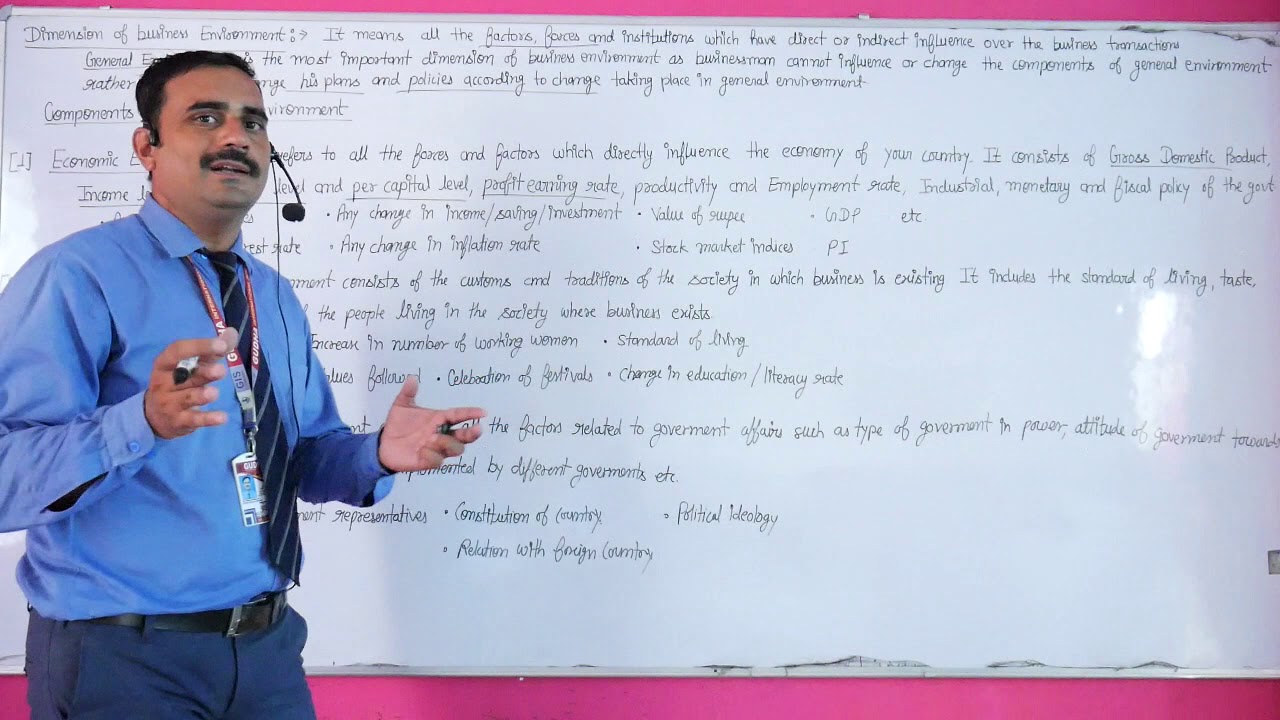 Dimension of business Environment :→ It means all the factors, forces and institutions which have direct or indirect influence over the business transactions
General is the most important dimension of business environment as businessman cannot influence or change the components of general environment
rather his plans and policies according to change taking place in general environment
Components
[1] Economic refers to all the forces and factors which directly influence the economy of your country. It consists of Gross Domestic Product,
Income level and per capital level, profit earning rate, productivity and Employment rate, Industrial, monetary and fiscal policy of the govt
• Any change in income/saving/investment • Value of rupee • GDP etc
rate • Any change in inflation rate • Stock market indices PI
consists of the customs and traditions of the society in which business is existing It includes the standard of living, taste,
the people living in the society where business exists.
Increase in number of working women • Standard of living
followed • Celebration of festivals • Change in education / literacy rate
all the factors related to goverment affairs such as type of goverment in power, attitude of goverment towards
by different goverments etc.
representatives • Constitution of Country • Political ideology
• Relation with foreign Country
GUDHA
GIS